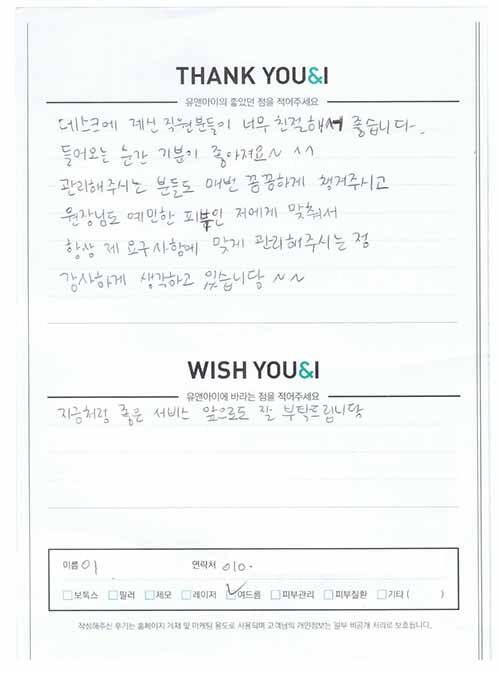 THANK YOU&I
유앤아이의 좋았던 점을 적어주세요
데스크에 계신 직원분들이 너무 친절해서 좋습니다.
들어오는 순간 기분이 좋아져요~ ^^
관리해주시는 분들도 매번 꼼꼼하게 챙겨주시고
원장님도 예민한 피부인 저에게 맞춰서
항상 제 요구사항에 맞게 관리해주시는 점
감사하게 생각하고 있습니당 ~ ~
WISH YOU&I
유앤아이에 바라는 점을 적어주세요
지금처럼 좋은 서비스 앞으로도 잘 부탁드립니닥
이름 이 연락처 010-
보톡스 필러 제모 레이저 여드름 피부관리 피부질환 기타 ( )
작성해주신 후기는 홈페이지 게재 및 마케팅 용도로 사용되며 고객님의 개인정보는 일부 비공개 처리로 보호됩니다.